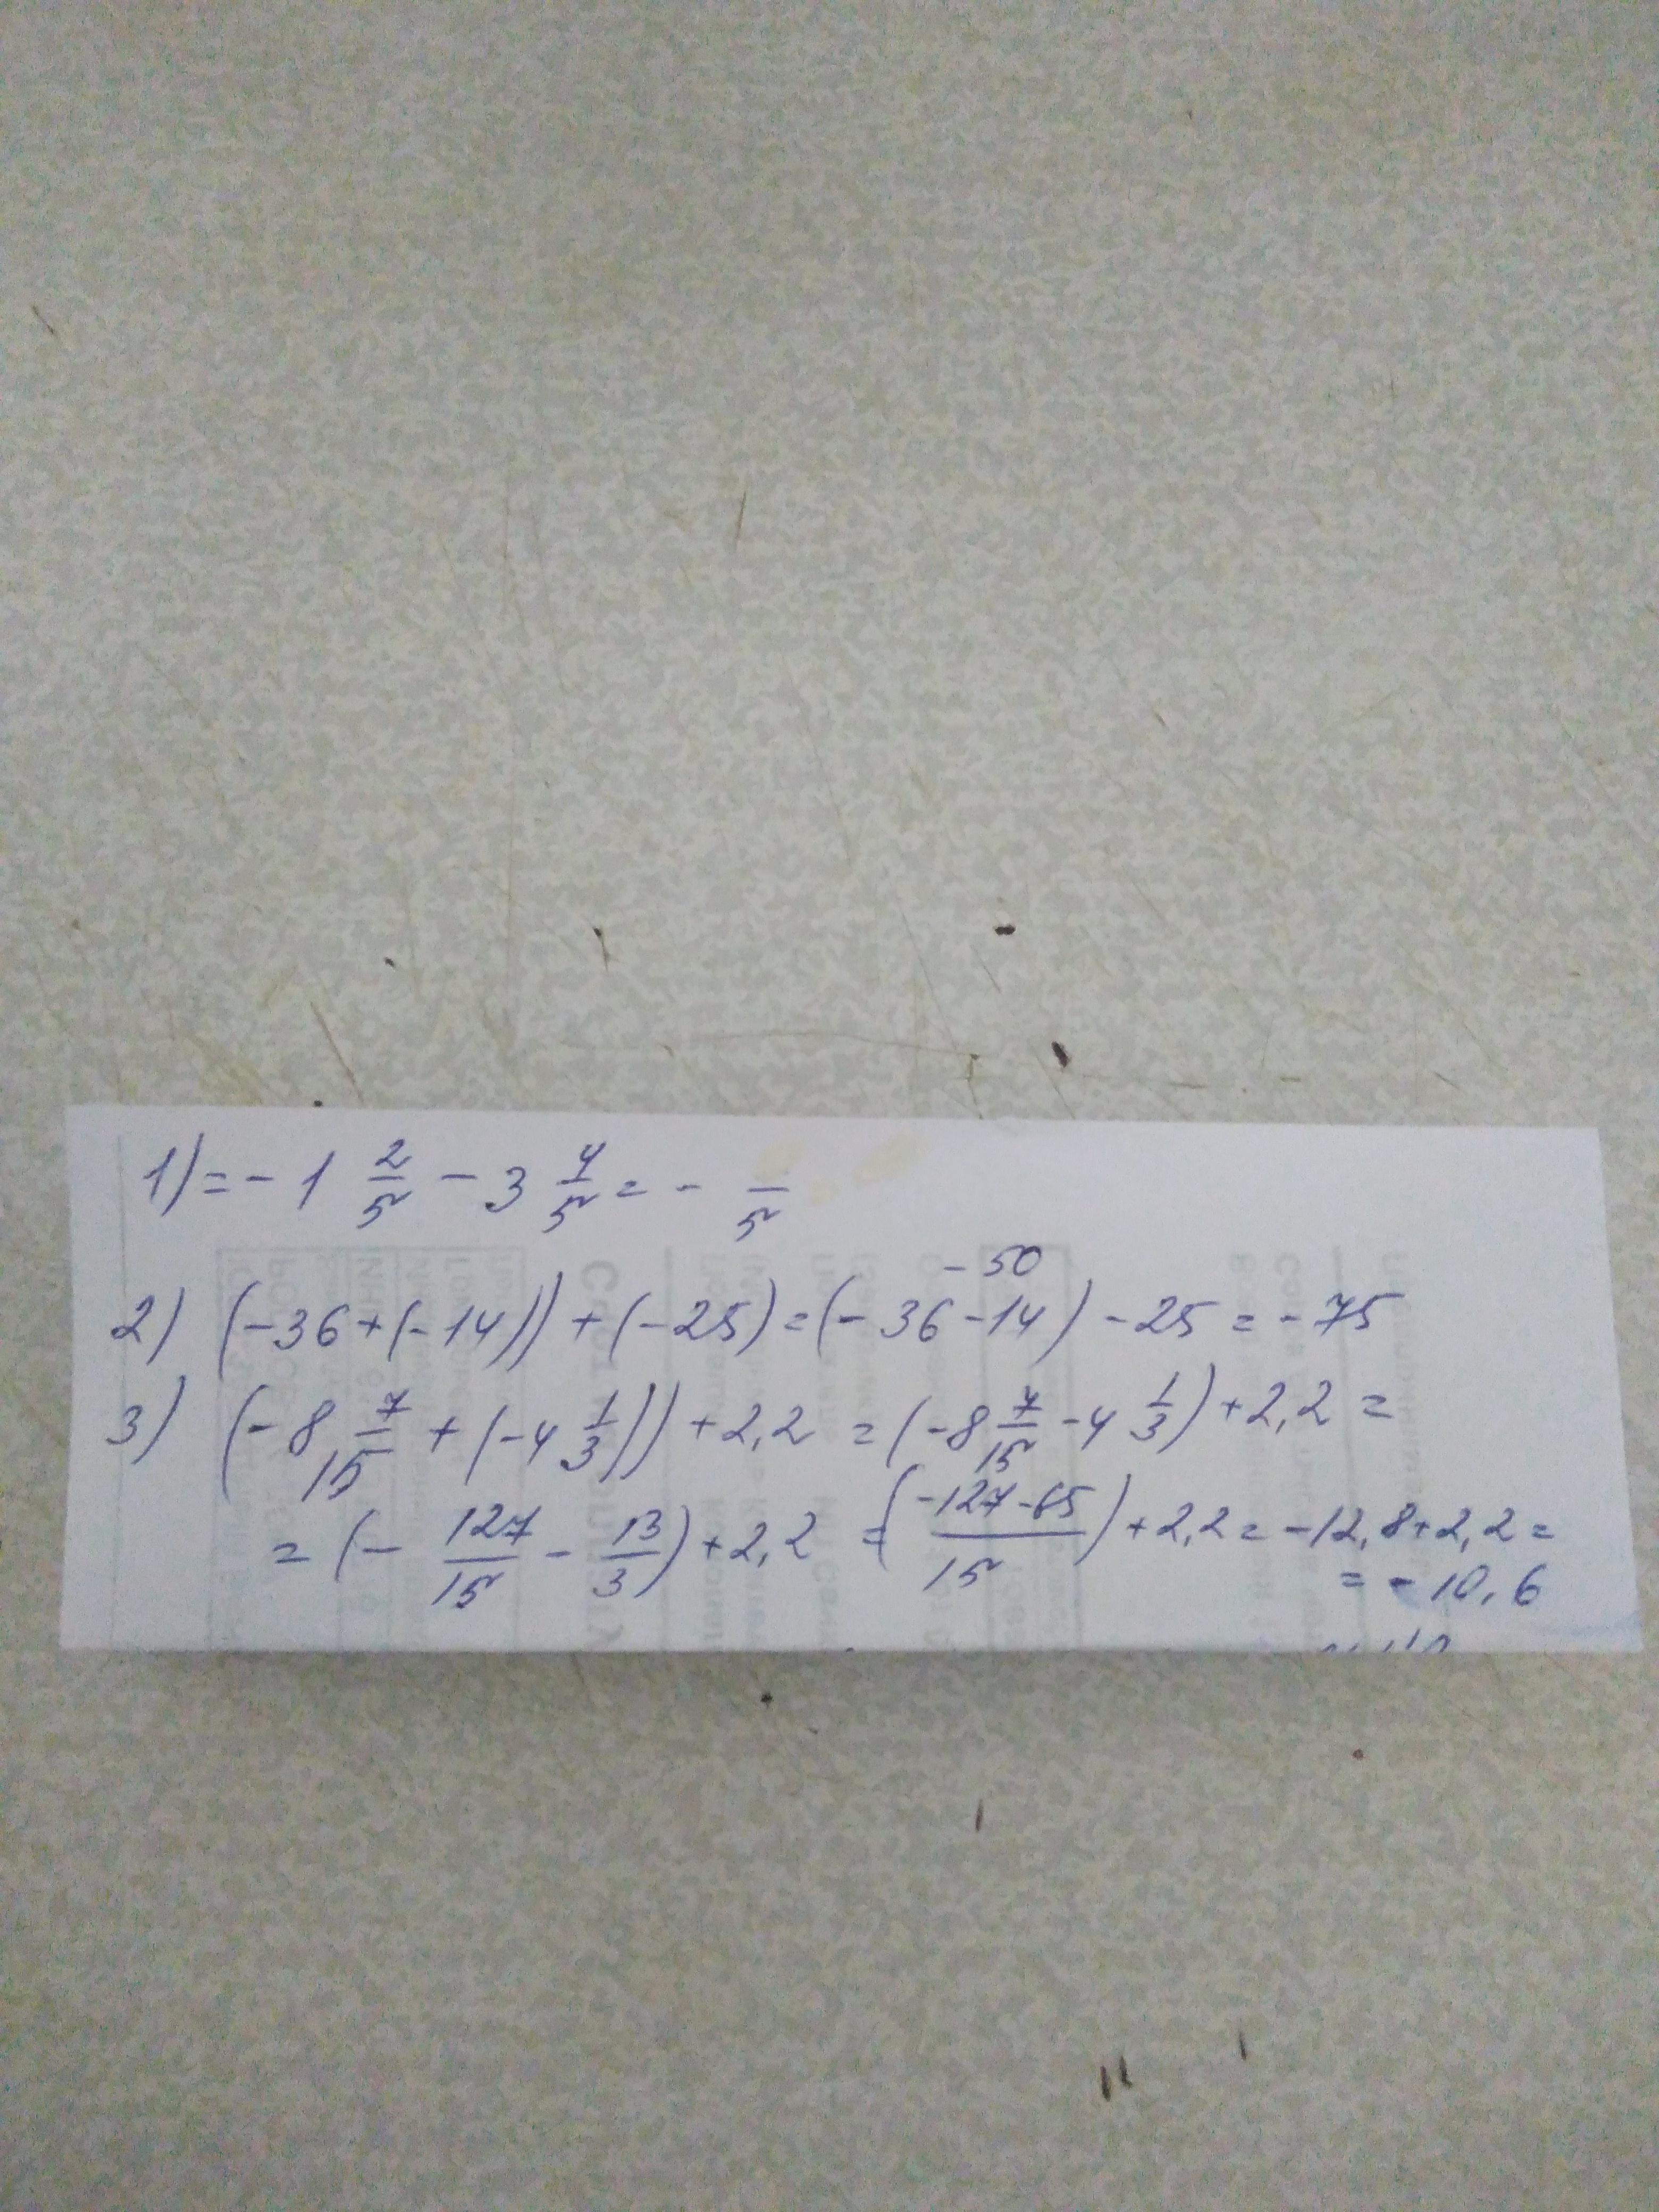 1) = - 1 2/5 - 3 4/5 = - /5
- 50
2) (-36+(-14))+(-25)=(-36-14)-25=-75
3) (-8 7/15 + (-4 1/3))+2,2 =(-8 7/15 -4 1/3)+2,2=
=(- 127/15 - 13/3)+2,2 =((-127-65)/15)+2,2=-12,8+2,2=
=-10,6